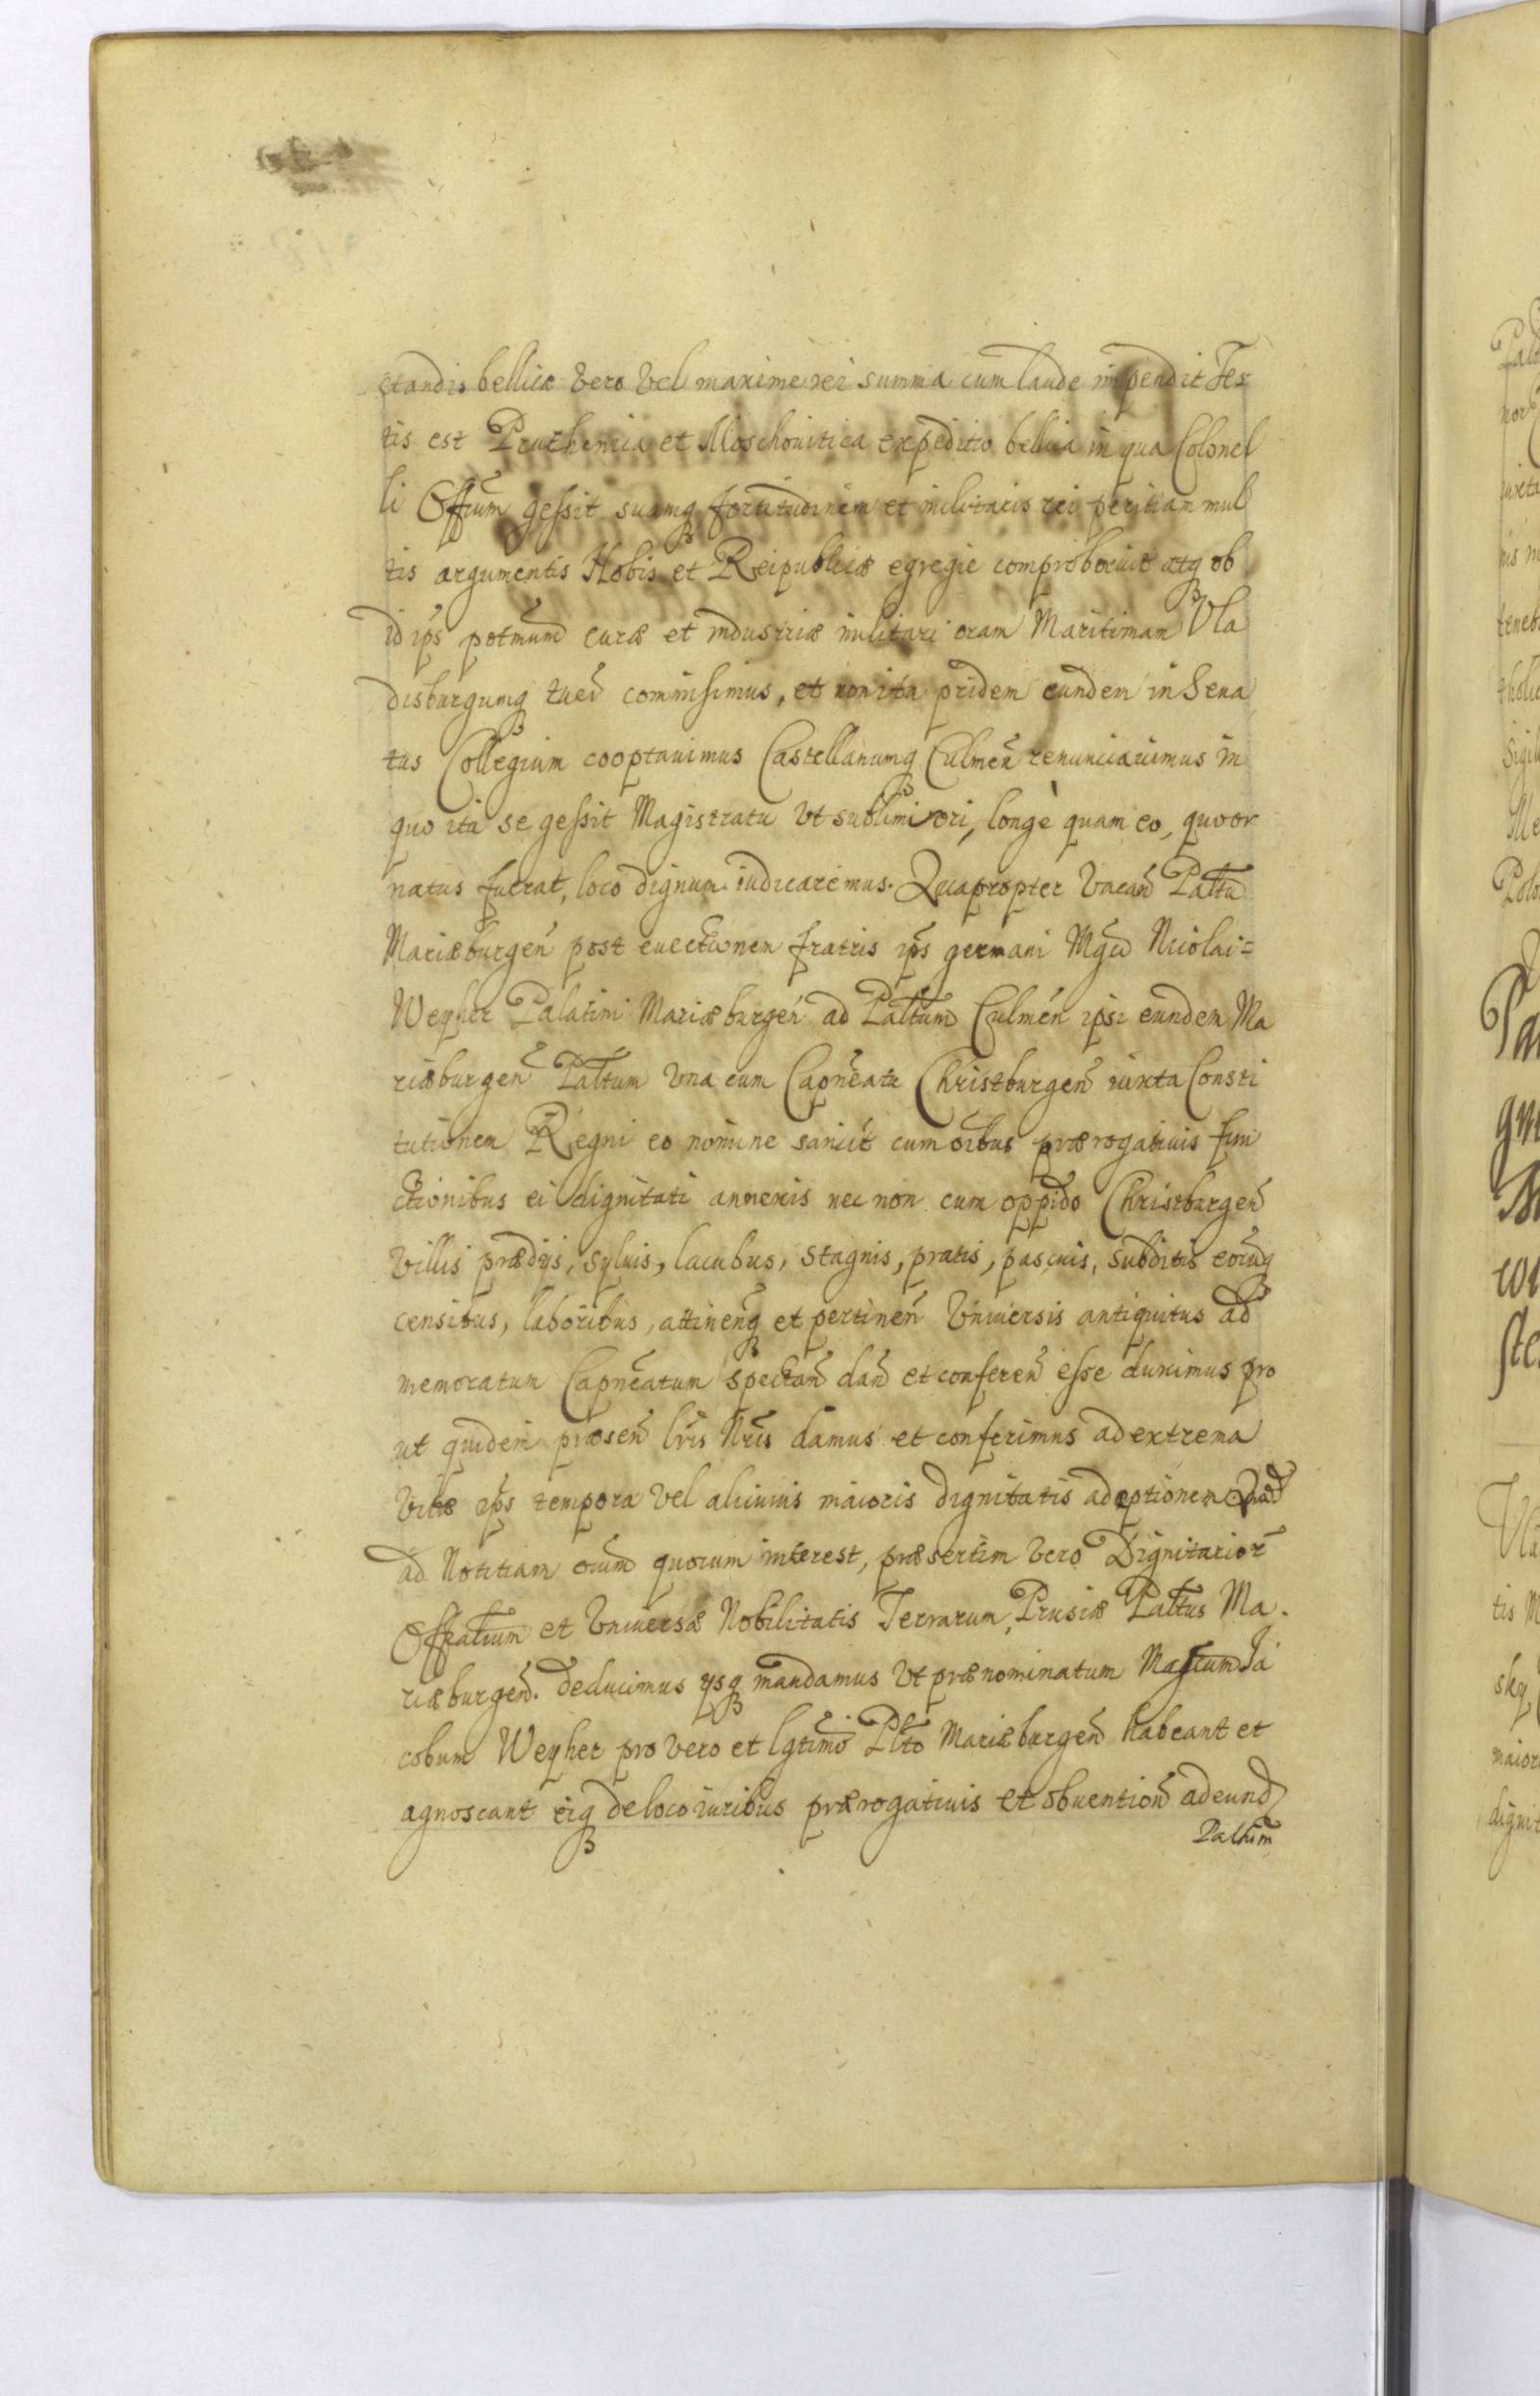 ctandis bellicæ vero vel maxime rei summa cum laude impendit Tes
tis est Pruthenica et Moschouitica expeditio bellica in qua Colonel
li Offium gessit suamq3 fortitudinem et militaris rei peritiam mul
tis argumentis Nobis et Reipublicæ egregie comprobauit atq3 ob
id ips potmum curæ et industriæ militari oram Maritimam Vla
disburgumq3 tuen commisimus, et non ita pridem eundem in Sena
tus Collegium cooptauimus Castellanumq3 Culmen renunciauimus in
quo ita se gessit Magistratu Vt sublimiori, longè quam eo, quo or
natus fuerat, loco dignum iudicaremus. Quapropter Vacan Paltu
Mariæburgen post euectionem fratris ips germani Mgci Nicolai=
Weyher Palatini Mariæburgen ad Paltum Culmen ipsi eundem Ma
riæburgen Paltum Vna cum Capneatu Christburgen iuxta Consti
tutionem Regni eo nomine sancit cum oibus prærogatiuis fun
ctionibus ei dignitati annexis nec non cum oppido Christburgen
Villis prædijs, syluis, lacubus, stagnis, pratis, pascuis, subditis eorumq3
censibus, laboribus, attinenq3 et pertinen Vniuersis antiquitus ad
memoratum Capneatum spectan dan et conferen esse duximus pro
ut quidem præsen lris Nris damus et conferimus ad extrema
Vitæ ips tempora Vel alicuius maioris dignitatis adeptionem Quod
ad Notitiam oium quorum interest, præsertim Vero Dignitarior
Offialium et Vniuersæ Nobilitatis Terrarum Prusiæ Paltus Ma.
riæburgen. deducimus ijsq3 mandamus Vt prænominatum Magcum Ja
cobum Weyher pro Vero et lgtimo Plto Mariæburgen habeant et
agnoscant eiq3 de loco iuribus prærogatiuis et obuention ad eund
Paltum